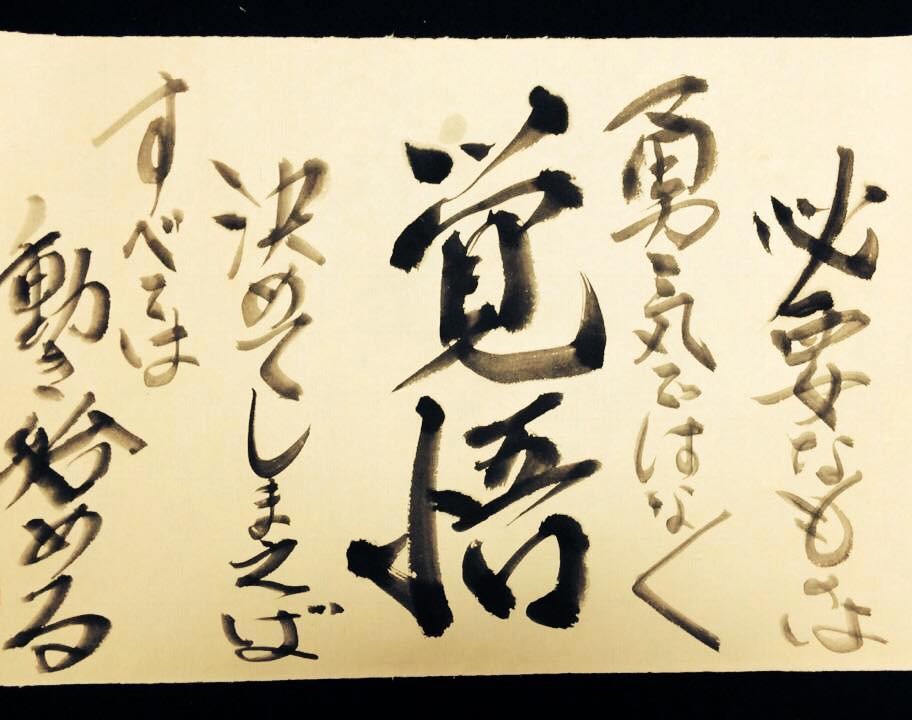 必要なものは
勇気ではなく
覚悟
決めてしまえば
すべては
動き始める